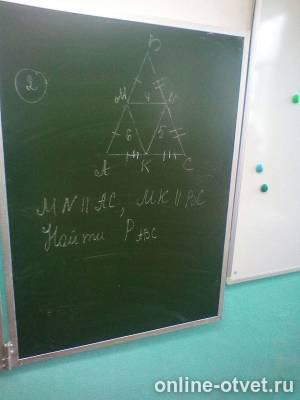 2
B
M 4 N
6 5
A K C
MN || AC, MK || BC
Найти P ABC
online-otvet.ru